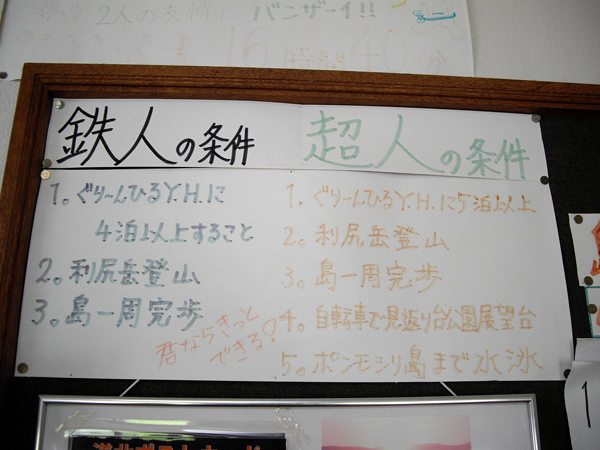 2人の友情に
バンザーイ!!
16時間40分
鉄人の条件
1。ぐりーんひるY.H.に
4泊以上すること
2。利尻岳登山
3。島一周完歩
君ならきっと
できる!
超人の条件
1。ぐりーんひるY.H.に5泊以上
2。利尻岳登山
3。島一周完歩
4。自転車で見返り台公園展望台
5。ポンモシリ島まで水泳
1